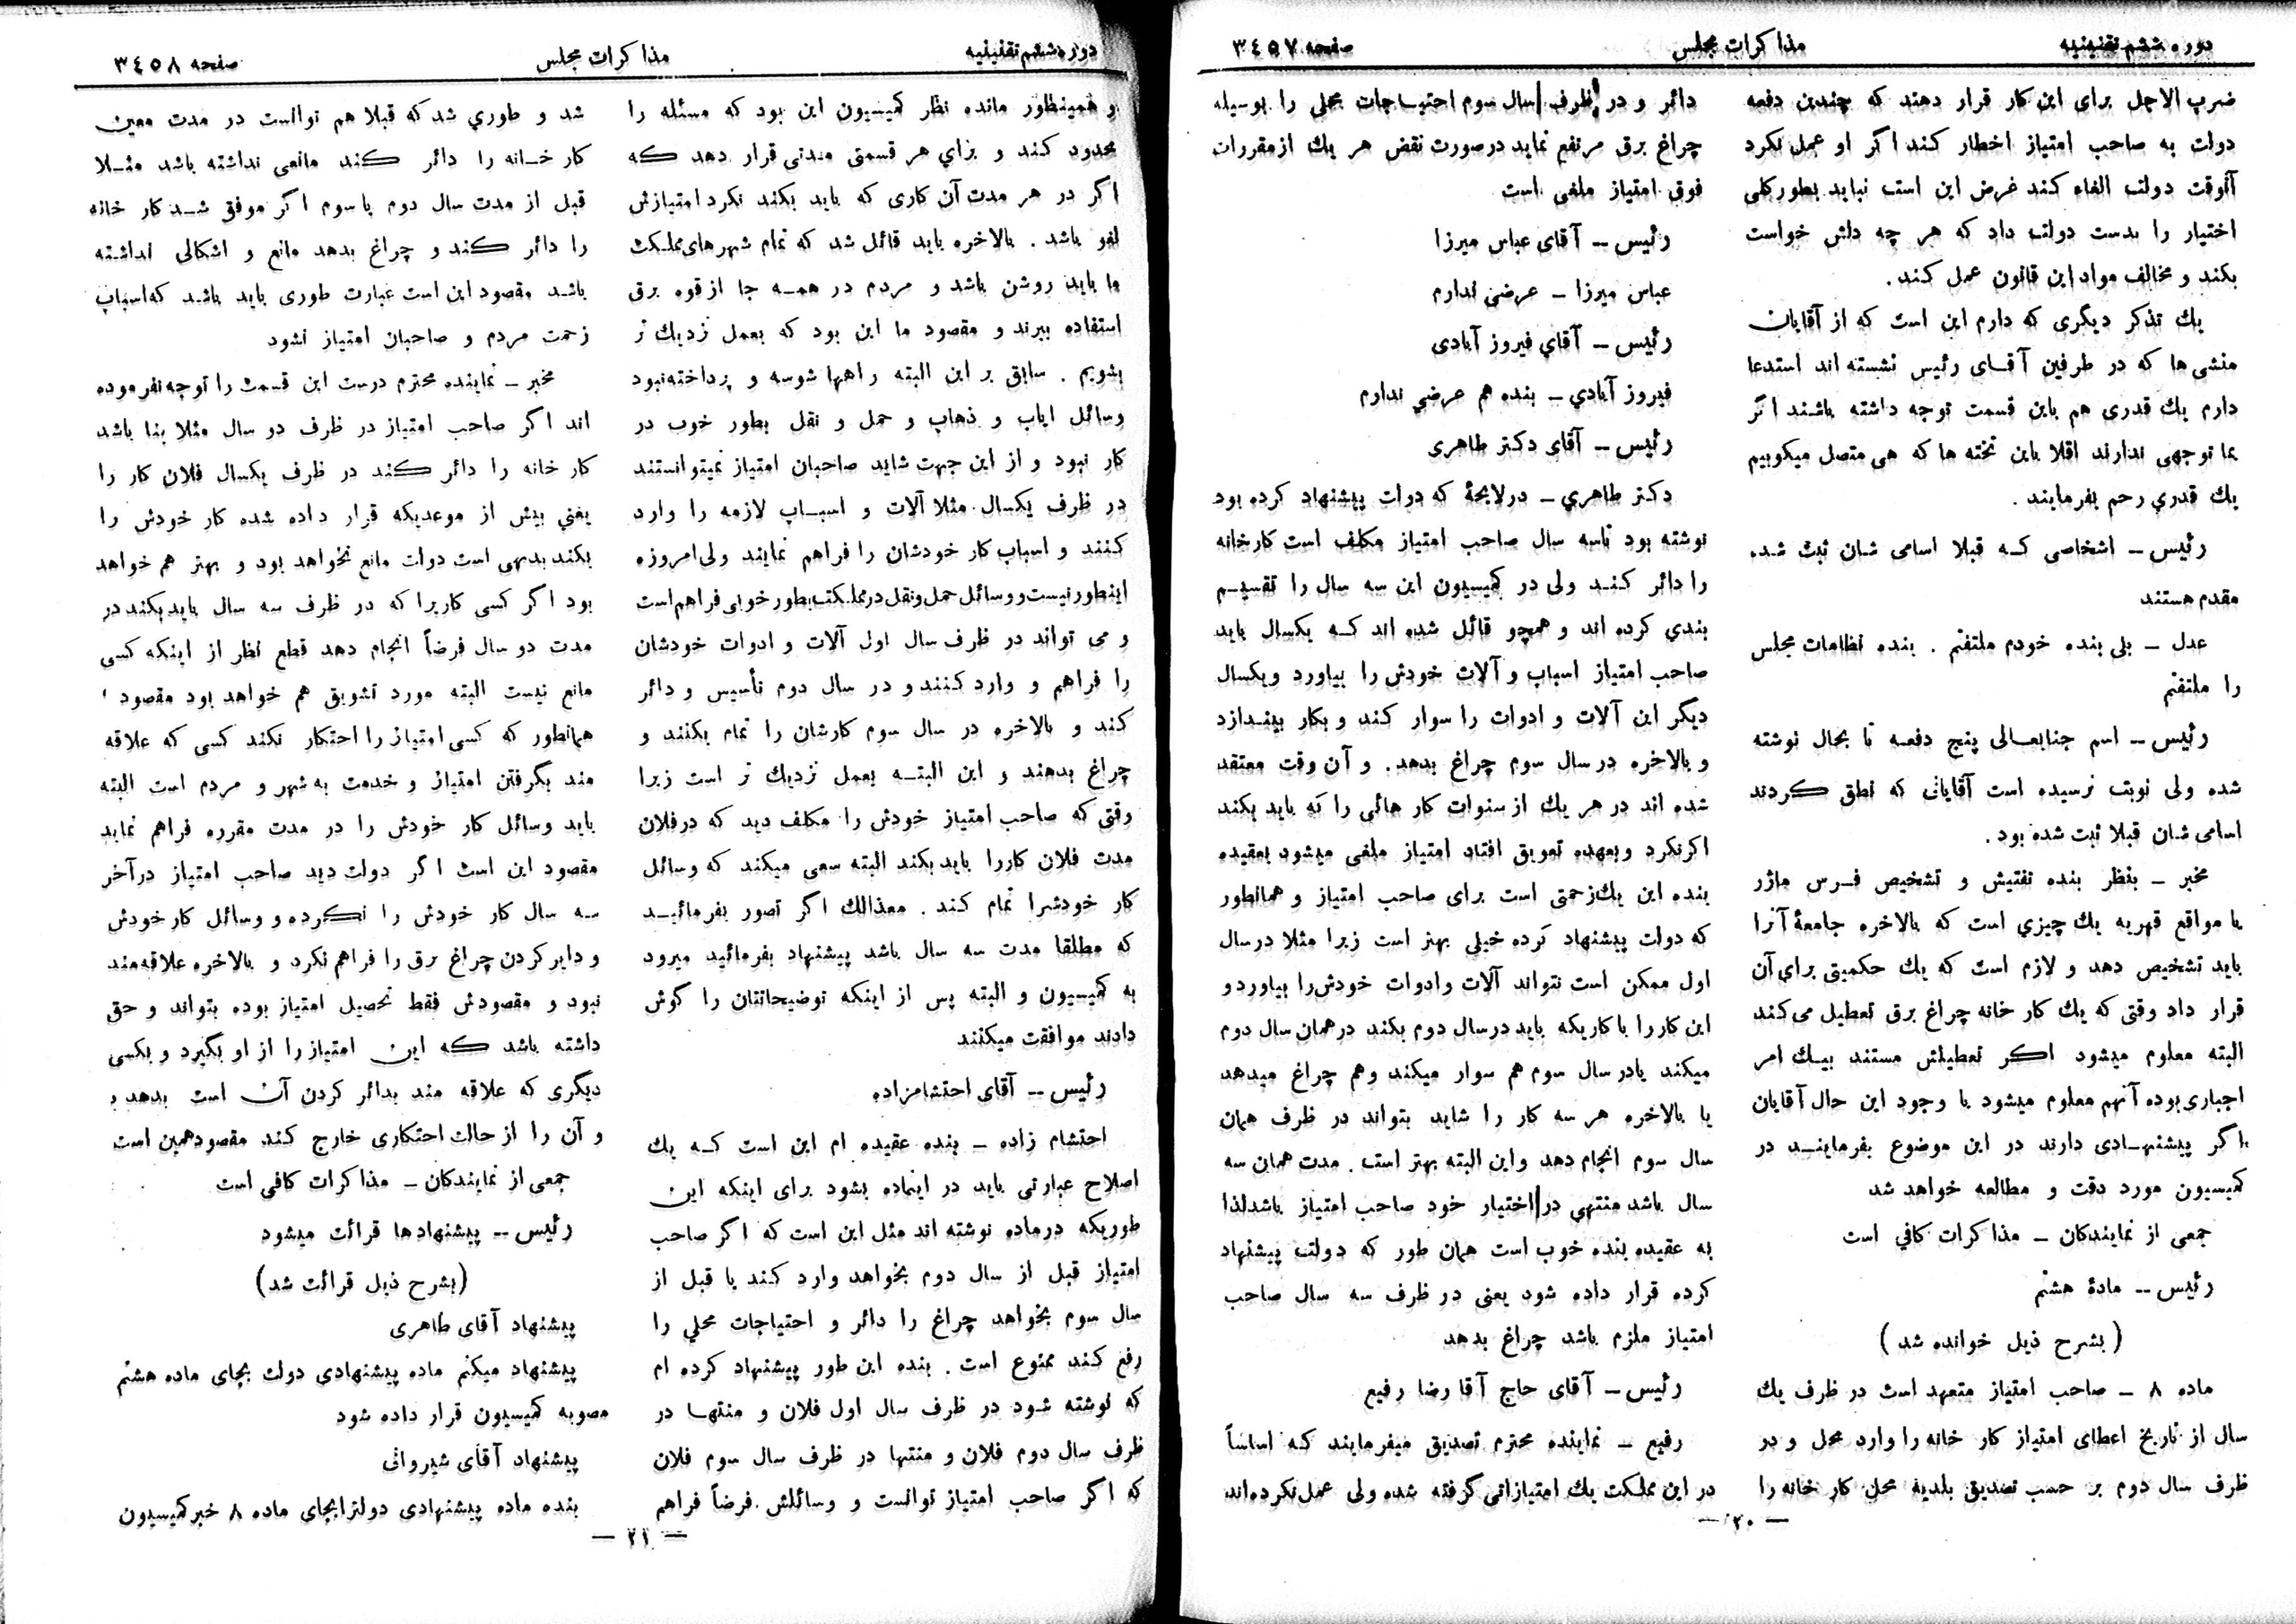 دوره ششم تقنینیه
مذاکرات مجلس
صفحه ۳۴۵۷
ضرب الاجل برای این کار قرار دهند که چندین دفعه
دولت به صاحب امتیاز اخطار کند اگر او عمل نکرد
آنوقت دولت الغاء کند غرض این است نباید بطورکلی
اختیار را بدست دولت داد که هر چه دلش خواست
بکند و مخالف مواد این قانون عمل کند .
یك تذکر دیگری که دارم این است که از آقایان
منشی ها که در طرفین آقـای رئیس نشسته اند استدعا
دارم یك قدری هم باین قسمت توجه داشته باشند اگر
بما توجهی ندارند اقلا باین تخته ها که هی متصل میکوبیم
یك قدري رحم بفرمایند .
رئیس – اشخاصی کـه قبلا اسامی شـان ثبت شده
مقدم هستند
عدل – بلی بنده خودم ملتفتم . بنده نظامات مجلس
را ملتفتم
رئیس – اسم جنابعـالی پنج دفعـه تا بحال نوشته
شده ولی نوبت نرسیده است آقایانی که نطق کردند
اسامی شان قبلا ثبت شده بود .
مخبر – بنظر بنده تفتیش و تشخیص فـرس ماژر
یا مواقع قهریه یك چیزي است که بالاخره جامعهٔ آنرا
باید تشخیص دهد و لازم است که یك حکمیتی برای آن
قرار داد وقتی که یك کار خانه چراغ برق تعطیل می کند
البته معلوم میشود اکر تعطیلش مستند بیـك امر
اجباری بوده آنهم معلوم میشود با وجود این حال آقایان
اگر پیشنهـادی دارند در این موضوع بفرماینـد در
کمیسیون مورد دقت و مطالعه خواهد شد
جمعی از نمایندکان – مذاکرات کافي است
رئیس – مادهٔ هشتم
( بشرح ذیل خوانده شد )
ماده ۸ – صاحب امتیاز متعهد است در ظرف یك
سال از تاریخ اعطای امتیاز کار خانه را وارد محل و در
ظرف سال دوم بر حسب تصدیق بلدیه محل کار خانه را
دائر و در ظرف سال سوم احتیـاجات محلی را بوسیله
چراغ برق مرتفع نماید درصورت نقض هر یك ازمقررات
فوق امتیاز ملغی است
رئیس – آقای عباس میرزا
عباس میرزا – عرضی ندارم
رئیس – آقاي فیروز آبادی
فیروز آبادي – بنده هم عرضي ندارم
رئیس – آقای دکتر طاهری
دکتر طاهري – درلایحهٔ که دولت پیشنهاد کرده بود
نوشته بود تاسه سال صاحب امتیاز مکلف است کارخانه
را دائر کنـد ولی در کمیسیون این سه سال را تقسیـم
بندي کرده اند و همچو قائل شده اند کـه یکسال باید
صاحب امتیاز اسباب و آلات خودش را بیاورد و یکسال
دیگر این آلات و ادوات را سوار کند و بکار بینـدازد
و بالاخره درسال سوم چراغ بدهد . و آن وقت معتقد
شده اند در هر یك از سنوات کار هائی را که باید بکند
اکرنکرد و بعهده تعویق افتاد امتیاز ملغی میشود بعقیده
بنده این یك زحمتی است برای صاحب امتیاز و همانطور
که دولت پیشنهاد کرده خیلی بهتر است زیرا مثلا درسال
اول ممکن است نتواند آلات وادوات خودش را بیاورد و
این کار را با کاریکه باید درسال دوم بکند درهمان سال دوم
میکند یادر سال سوم هم سوار میکند وهم چراغ میدهد
یا بالاخره هر سه کار را شاید بتواند در ظرف همان
سال سوم انجام دهد واین البته بهتر است . مدت همان سه
سال باشد منتهی در اختیار خود صاحب امتیاز باشدلذا
به عقیده بنده خوب است همان طور که دولت پیشنهاد
کرده قرار داده شود یعنی در ظرف سه سال صاحب
امتیاز ملزم باشد چراغ بدهد
رئیس – آقای حاج آقا رضا رفیع
رفیع – نماینده محترم تصدیق میفرمایند کـه اساساً
در این مملکت یك امتیازاتی گرفته شده ولی عمل نکرده اند
– ۲۰ –
دوره ششم تقنینیه
مذاکرات مجلس
صفحه ۳۴۵۸
و همینطور مانده نظر کمیسیون این بود که مسئله را
محدود کند و براي هر قسمتی مدتی قرار دهد کـه
اگر در هر مدت آن کاری که باید بکند نکرد امتیازش
لغو باشد . بالاخره باید قائل شد که تمام شهر های مملکت
ما باید روشن باشد و مردم در همـه جا از قوه برق
استفاده ببرند و مقصود ما این بود که بعمل نزدیك تر
بشویم . سابق بر این البته راهها شوسه و پرداخته نبود
وسائل ایاب و ذهاب و حمل و نقل بطور خوب در
کار نبود و از این جهت شاید صاحبان امتیاز نمیتوانستند
در ظرف یکسال مثلا آلات و اسبـاب لازمه را وارد
کنند و اسباب کار خودشان را فراهم نمایند ولی امروزه
اینطورنیست و وسائل حمل و نقل درمملکت بطورخوبی فراهم است
و می تواند در ظرف سال اول آلات و ادوات خودشان
را فراهم و وارد کنند و در سال دوم تأسیس و دائر
کند و بالاخره در سال سوم کارشان را تمام بکنند و
چراغ بدهند و این البتـه بعمل نزدیك تر است زیرا
وقتی که صاحب امتیاز خودش را مکلف دید که درفلان
مدت فلان کاررا باید بکند البته سعی میکند که وسائل
کار خودشرا تمام کند . معذالك اگر تصور بفرمائیـد
که مطلقا مدت سه سال باشد پیشنهاد بفرمائید میرود
به کمیسیون و البته پس از اینکه توضیحاتتان را گوش
دادند موافقت میکنند
رئیس – آقای احتشامزاده
احتشام زاده – بنده عقیده ام این است کـه یك
اصلاح عبارتی باید در اینماده بشود برای اینکه این
طوریکه درماده نوشته اند مثل این است که اگر صاحب
امتیاز قبل از سال دوم بخواهد وارد کند یا قبل از
سال سوم بخواهد چراغ را دائر و احتیاجات محلي را
رفع کند ممنوع است . بنده این طور پیشنهاد کرده ام
که نوشته شود در ظرف سال اول فلان و منتهـا در
ظرف سال دوم فلان و منتها در ظرف سال سوم فلان
که اگر صاحب امتیاز توانست و وسائلش فرضاً فراهم
شد و طوري شد که قبلا هم توانست در مدت معین
کار خـانه را دائر کند مانعی نداشته باشد مثـلا
قبل از مدت سال دوم یا سوم اگر موفق شـد کار خانه
را دائر کند و چراغ بدهد مانع و اشکالی نداشته
باشد مقصود این است عبارت طوری باید باشد که اسباب
زحمت مردم و صاحبان امتیاز نشود
مخبر – نماینده محترم درست این قسمت را توجه نفرموده
اند اگر صاحب امتیاز در ظرف دو سال مثلا بنا باشد
کار خانه را دائر کند در ظرف یکسال فلان کار را
یعني بیش از موعدیکه قرار داده شده کار خودش را
بکند بدیهی است دولت مانع نخواهد بود و بهتر هم خواهد
بود اگر کسی کاریرا که در ظرف سه سال باید بکند در
مدت دو سال فرضاً انجام دهد قطع نظر از اینکه کسی
مانع نیست البته مورد تشویق هم خواهد بود مقصود
همانطور که کسی امتیاز را احتکار نکند کسی که علاقه
مند بگرفتن امتیاز و خدمت به شهر و مردم است البته
باید وسائل کار خودش را در مدت مقرره فراهم نماید
مقصود این است اگر دولت دید صاحب امتیاز درآخر
سه سال کار خودش را نکرده و وسائل کار خودش
و دایر کردن چراغ برق را فراهم نکرد و بالاخره علاقه مند
نبود و مقصودش فقط تحصیل امتیاز بوده بتواند و حق
داشته باشد که این امتیاز را از او بگیرد و بکسی
دیگری که علاقه مند بدائر کردن آن است بدهد
و آن را از حالت احتکاری خارج کند مقصودهمین است
جمعی از نمایندکان – مذاکرات کافی است
رئیس – پیشنهادها قرائت میشود
(بشرح ذیل قرائت شد)
پیشنهاد آقای طاهری
پیشنهاد میکنم ماده پیشنهادی دولت بجای ماده هشتم
مصوبه کمیسیون قرار داده شود
پیشنهاد آقای شیروانی
بنده ماده پیشنهادی دولترابجای ماده ۸ خبرکمیسیون
– ۲۱ –